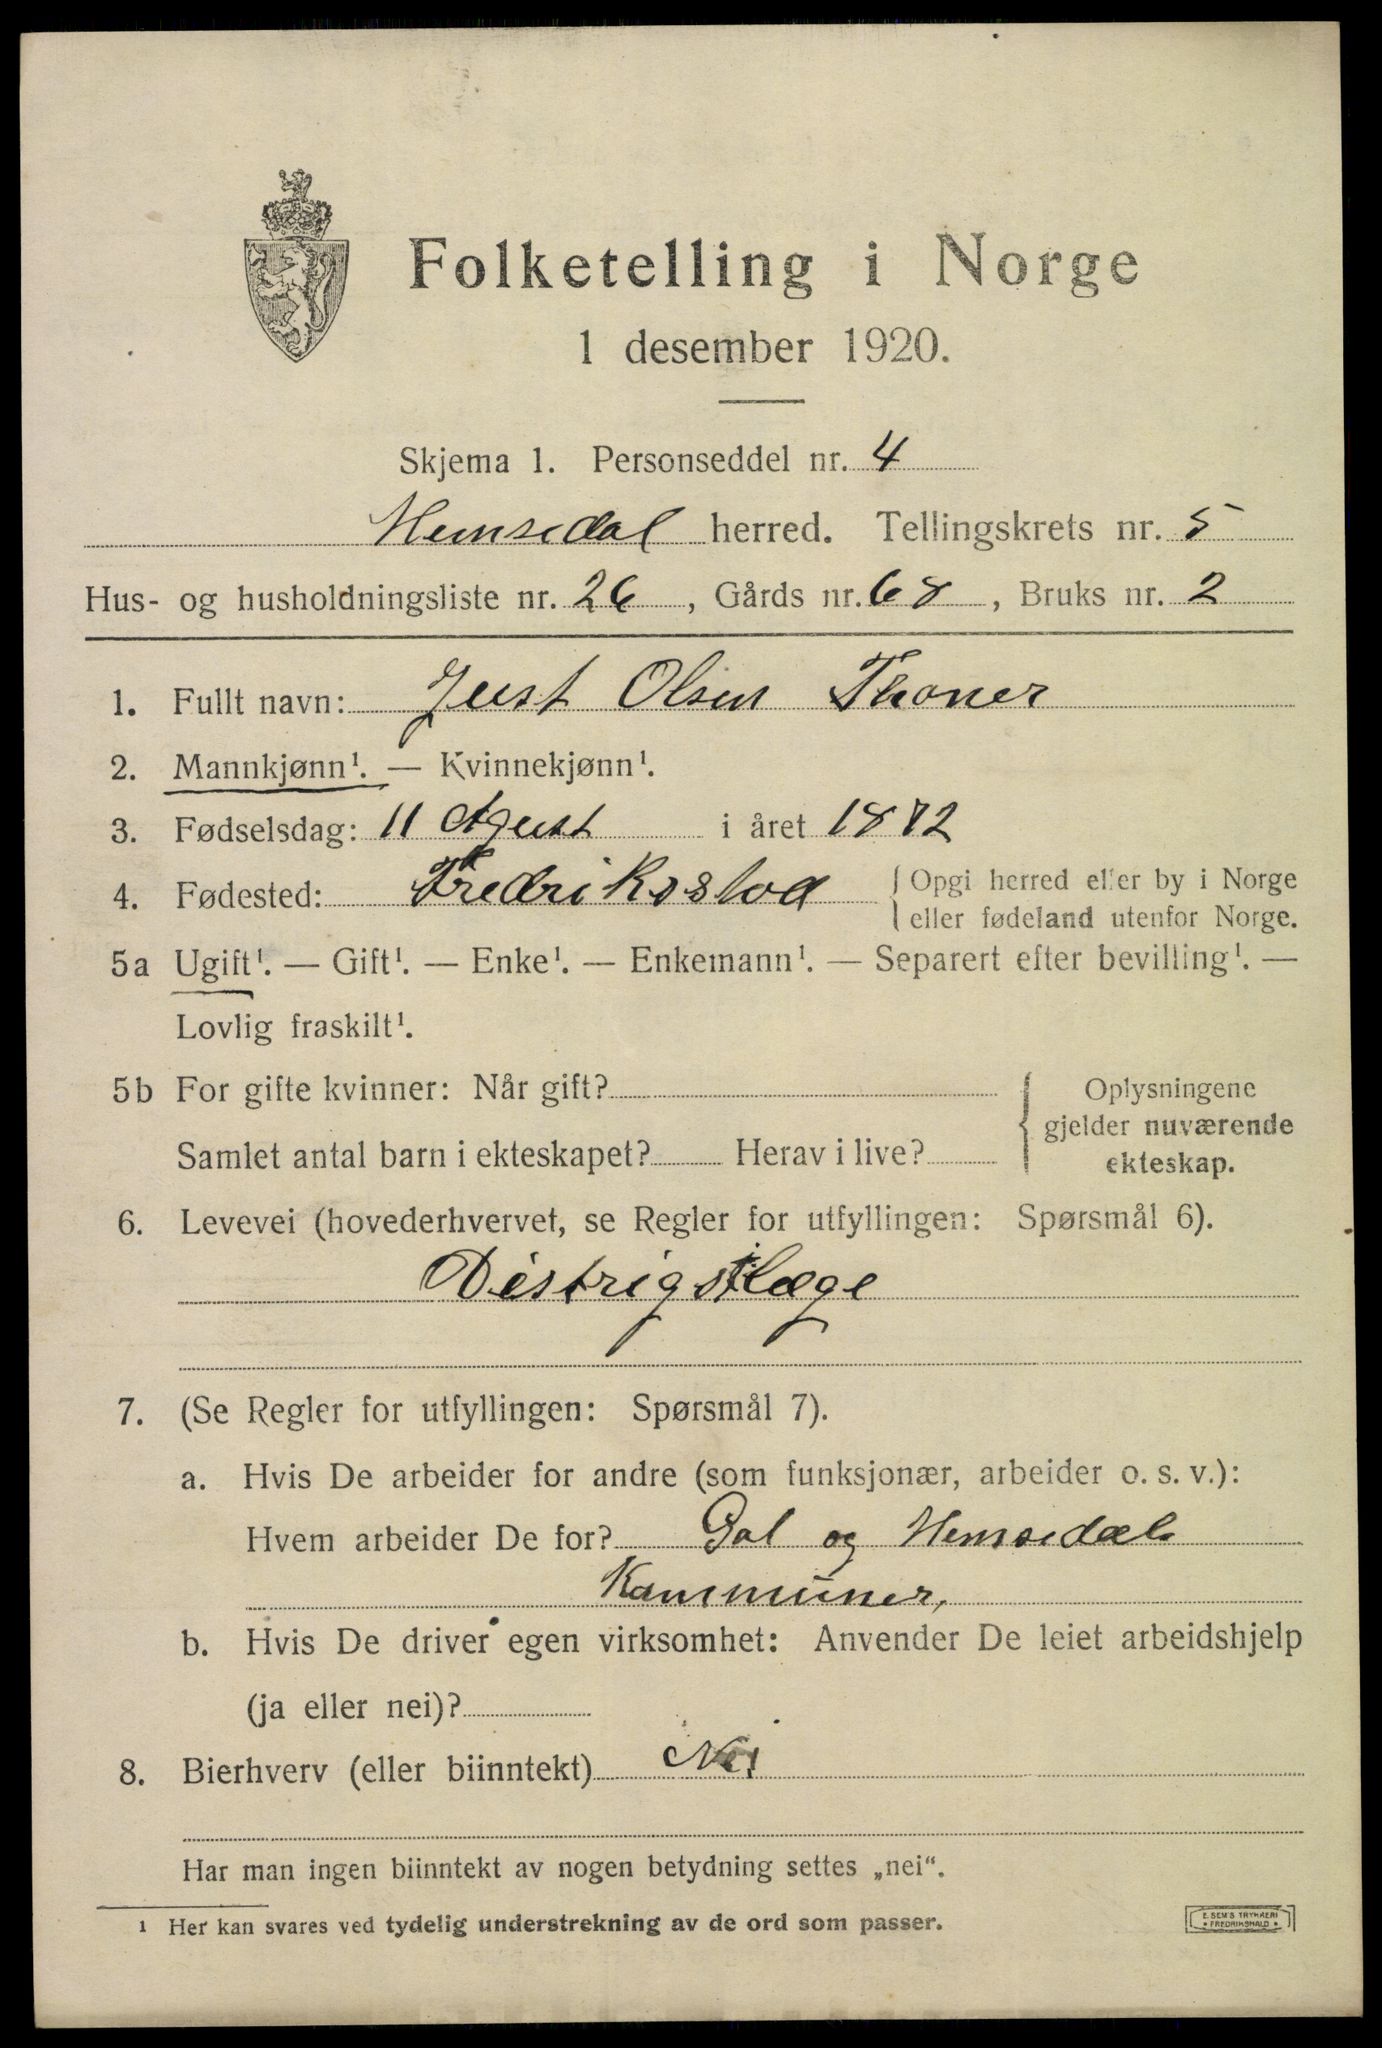 Folketelling i Norge
1 desember 1920.
Skjema 1. Personseddel nr. 4
Hemsedal herred. Tellingskrets nr. 5
Hus- og husholdningsliste nr. 26, Gårds nr. 68, Bruks nr. 2
1. Fullt navn: Just Olsen Thoner
2. Mannkjønn¹. — Kvinnekjønn¹.
3. Fødselsdag: 11 Agust i året 1872
4. Fødested: Fredriksstad { Opgi herred eller by i Norge
eller fødeland utenfor Norge.
5a Ugift¹. — Gift¹. — Enke¹. — Enkemann¹. — Separert efter bevilling¹. —
Lovlig fraskilt¹.
5b For gifte kvinner: Når gift?
Samlet antal barn i ekteskapet? Herav i live?
{ Oplysningene
gjelder nuværende
ekteskap.
6. Levevei (hovederhvervet, se Regler for utfyllingen: Spørsmål 6).
Distrigtslæge
7. (Se Regler for utfyllingen: Spørsmål 7).
a. Hvis De arbeider for andre (som funksjonær, arbeider o. s. v.):
Hvem arbeider De for? Gol og Hemsedals
Kommuner,
b. Hvis De driver egen virksomhet: Anvender De leiet arbeidshjelp
(ja eller nei)?
8. Bierhverv (eller biinntekt) Nei
Har man ingen biinntekt av nogen betydning settes „nei“.
¹ Her kan svares ved tydelig understrekning av de ord som passer.
E. SEM'S TRYKKERI
• FREDRIKSHALD •